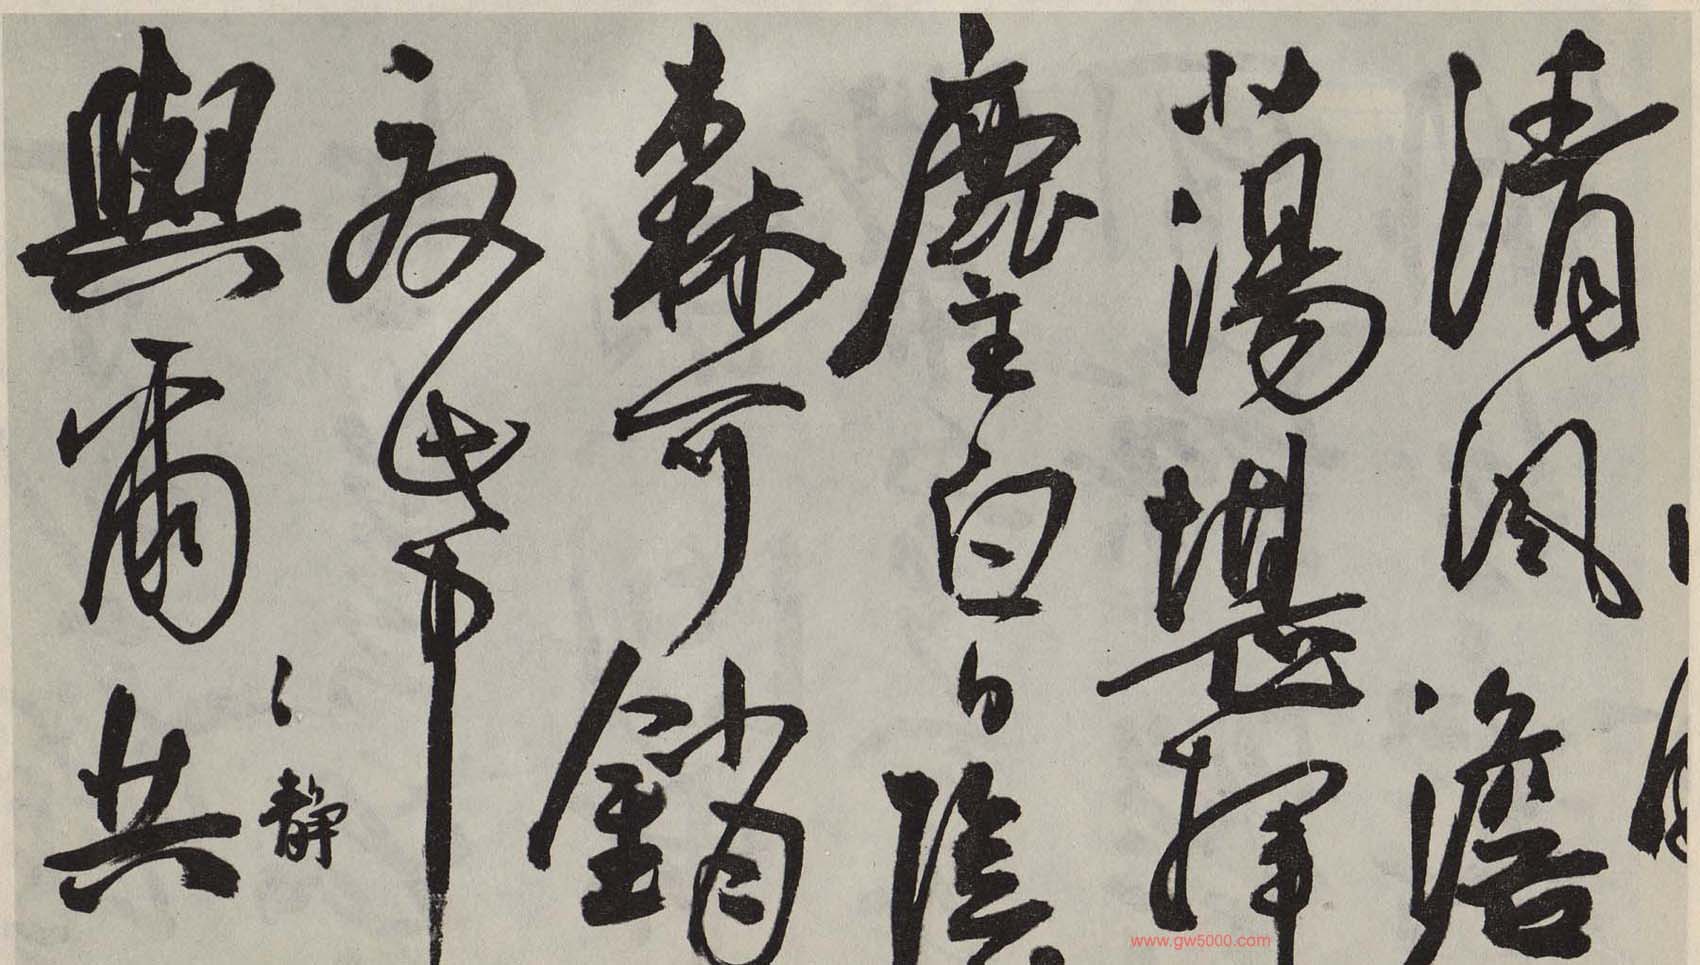 清風澹
蕩堪揮
麈白日陰
森可銷
夜來
與爾共
靜
www.gw5000.com